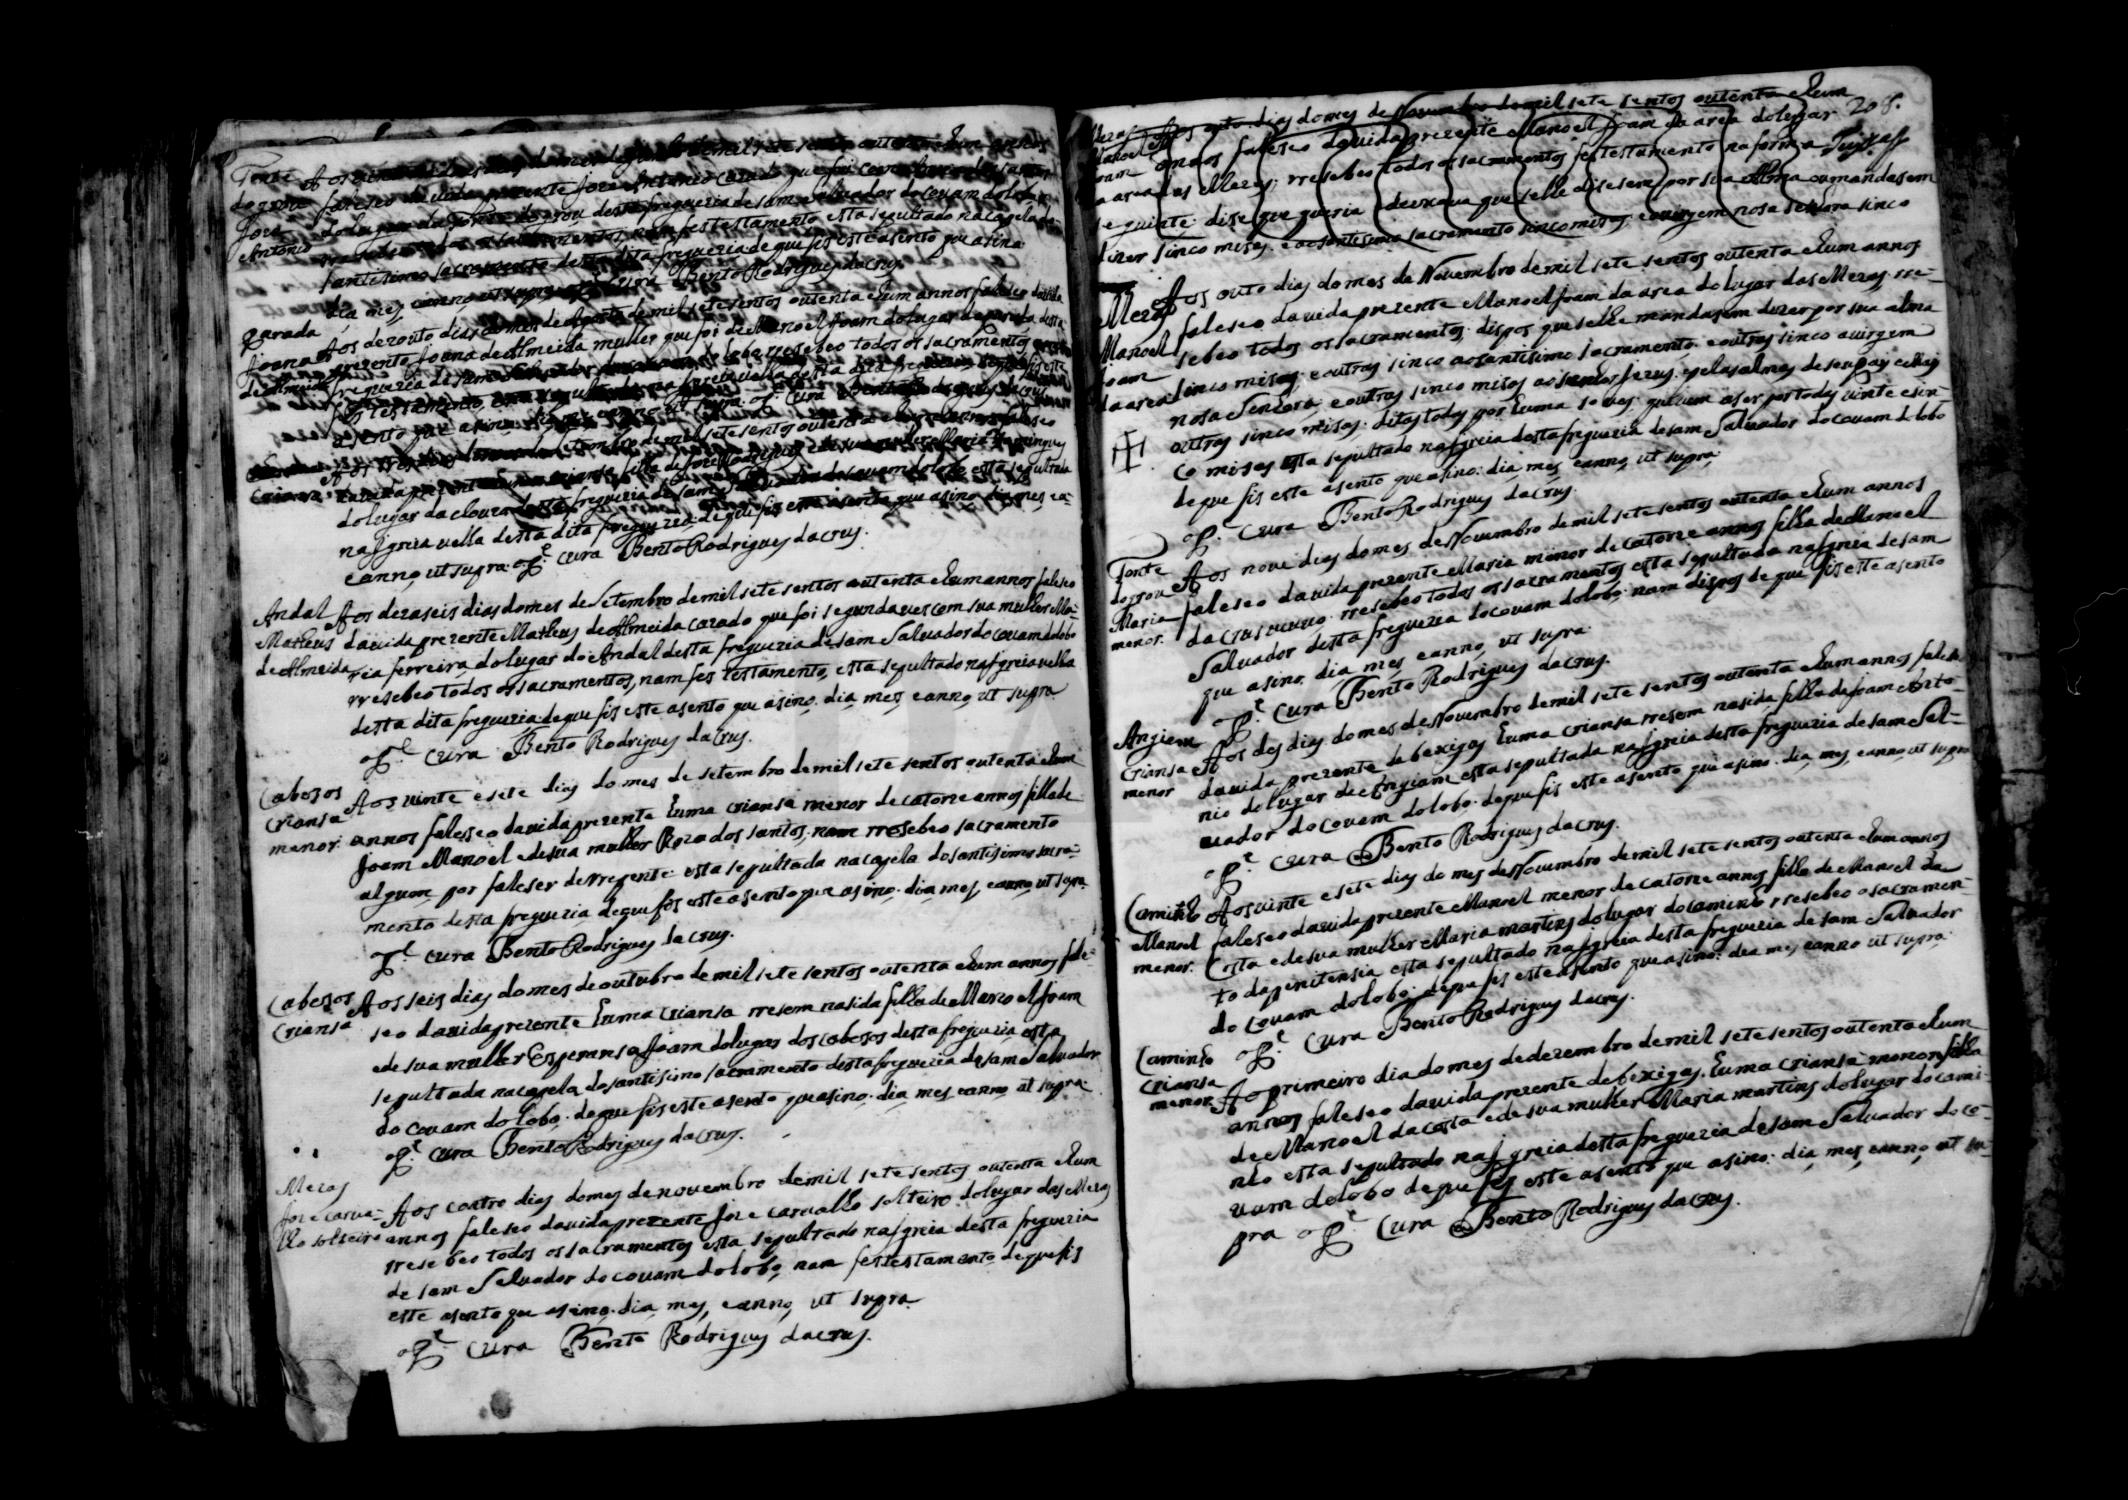 Fonte
do grou
Joze
Antonio
faleseo da vida prezente Joze Antonio
desta freguezia de sam Salvador do covam do lobo
nam fes testamento esta sepultado na capela do
santisimo sacramento desta dita freguezia de que fis este asento que asino
dia mes eanno ut supra o P.e Cura Bento Rodrigues da crus.
parada
Joana
de Almeida
Aos dezouto dias do mes de Agosto de mil sete sentos outenta e hum annos faleseo da vida
prezente Joana de Almeida mulher que foi de Manoel Joam do lugar de parada desta
freguezia de sam Salvador do covam do lobo rresebeo todos os sacramentos
testamento
asento que asino dia mes eanno ut supra o P.e Cura Bento Rodrigues da crus
crianca
setembro de mil sete sentos outenta e hum annos faleseo
da vida prezente huma criansa filha de Joze Rodrigues e de sua mulher Maria Domingues
do lugar da desta freguezia de sam Salvador do covam do lobo esta sepultada
na Igreia velha desta dita freguezia de que fis este asento que asino dia mes ea-
eanno ut supra o P.e Cura Bento Rodrigues da crus.
Andal
Matheus
de Almeida
Aos dezaseis dias do mes de Setembro de mil sete sentos outenta ehum annos faleseo
da vida prezente Matheus de Almeida cazado que foi segunda ves com sua mulher Ma-
ria ferreira do lugar do Andal desta freguezia de sam Salvador do covam do lobo
rresebeo todos os sacramentos, nam fes testamento, esta sepultado na Igreia velha
desta dita freguezia de que fis este asento que asino. dia mes eanno ut supra
o P.e Cura Bento Rodrigues da Crus.
Cabesos
Criansa
menor.
Aos vinte esete dias do mes de setembro de mil sete sentos outenta ehum
annos falesseo da vida prezente huma criansa menor de catorze annos filha de
Joam Manoel e de sua mulher Roza dos santos, nam rresebeo sacramento
algum, por faleser de rrepente esta sepultada na capela do santisimo sacra-
mento desta freguezia de que fis este asento que asino. dia mes, eanno ut supra.
P.e Cura Bento Rodrigues da crus.
Cabesos
Criansa
Aos seis dias do mes de outubro de mil sete sentos outenta ehum annos fale-
seo da vida prezente huma crianca rresem nasida filha de Manoel Joam
e de sua mulher Esperansa Joam do lugar dos cabesos desta freguezia esta
sepultada na capela do santisimo sacramento desta freguezia de sam Salvador
do covam do lobo. de que fis este asento que asino. dia mes eanno ut supra
o P.e Cura Bento Rodrigues da crus.
Mezas
Joze carva-
lho solteiro
Aos coatro dias do mes de novembro de mil sete sentos outenta ehum
annos faleseo da vida prezente Joze carvalho solteiro do lugar das Mezas
rresebeo todos os sacramentos esta sepultado na Igreia desta freguezia
de sam Salvador do covam do lobo, nam fes testamento de que fis
este asento que asino. dia, mes, eanno, ut supra.
o P.e Cura Bento Rodrigues da crus.
208.
Mezas
Manoel
Joam
da area
Aos outo dias do mes de Novembro de mil sete sentos outenta ehum
annos faleseo da vida prezente Manoel Joam da area do lugar
das Mezas: rresebeo todos os sacramentos fes testamento na forma
seguinte: dise que queria edeixava que selhe disesem por sua Alma oumandasem
dizer sinco misas e ao santisimo sacramento sinco misas eavirgem nosa senhora sinco
Mezas
Manoel
Joam
da area
Aos outo dias do mes de Novembro de mil sete sentos outenta ehum annos
faleseo da vida prezente Manoel Joam da area do lugar das Mezas rre-
sebeo todos os sacramentos; dispos que selhe mandasem dizer por sua alma
sinco misas eoutras sinco aosantisimo sacramento: eoutras sinco avirgem
nosa senhora: eoutras sinco misas ao senhor Jezus: epelas almas de seu pay emay
outras sinco misas. ditas todas por huma so ves: que vem aser por todas vinte esin-
co misas esta sepultado na Igreia desta freguezia de sam Salvador do covam do lobo
de que fis este asento que asino: dia mes eanno, ut supra.
o P. Cura Bento Rodrigues da crus.
Fonte
do grou
Maria
menor.
Aos nove dias do mes de Novembro de mil sete sentos outenta ehum annos
faleseo da vida prezente Maria menor de catorze annos filha de Manoel
da crus rresebeo todos os sacramentos esta sepultada na Igreia de sam
Salvador desta freguezia do covam do lobo: nam dispos de que fis este asento
que asino, dia, mes, eanno, ut supra
o P.e Cura Bento Rodrigues da crus.
Angiam
Criansa
menor
Aos des dias do mes de Novembro de mil sete sentos outenta ehum annos faleseo
da vida prezente de bexigas huma crianса rresem nasida filha de Joam Anto-
nio do lugar de Angiam esta sepultada na Igreia desta freguezia de sam Sal-
vador do covam do lobo. de que fis este asento que asino. dia mes, eanno, ut supra
o P.e Cura Bento Rodrigues da crus.
Caminho
Manoel
menor.
Aos vinte esete dias do mes de Novembro de mil sete sentos outenta ehum annos
faleseo da vida prezente Manoel menor de catorze annos filho de Manoel da
Costa e de sua mulher Maria martins do lugar do caminho rresebeo o sacramen-
to da penitensia esta sepultado na Igreia desta freguezia de sam Salvador
do covam do lobo: de que fis este asento que asino: dia mes eanno ut supra.
o P.e Cura Bento Rodrigues da crus.
Caminho
Criansa
menor
Ao primeiro dia do mes de dezembro de mil sete sentos outenta ehum
annos faleseo da vida prezente de bexigas. huma criansa menor filha
de Manoel da costa e de sua mulher Maria martins do lugar do cami-
nho esta sepultado na Igreia desta freguezia de sam Salvador do co-
vam do lobo de que fis este asento que asino: dia, mes, eanno, ut su-
pra o P.e Cura Bento Rodrigues da crus.